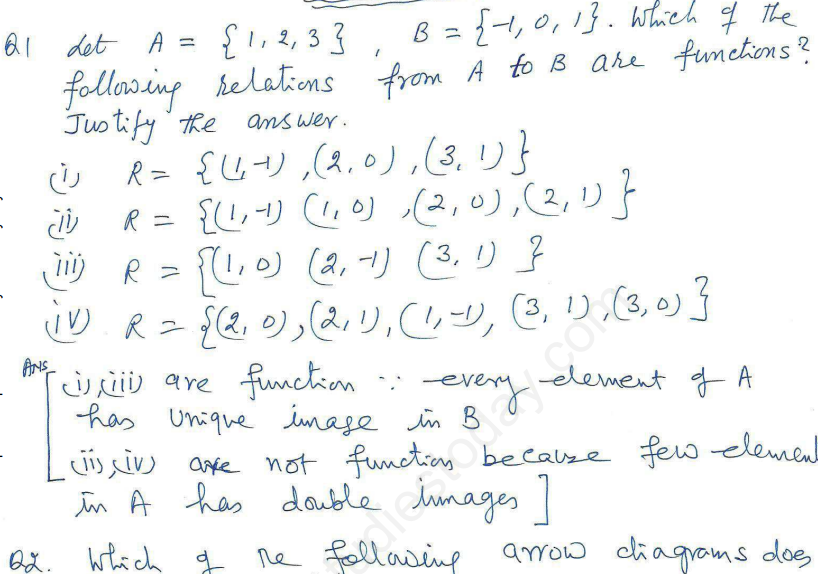 Q1 Let A = {1, 2, 3}, B = {-1, 0, 1}. Which of the
following relations from A to B are functions?
Justify the answer.
(i) R = {(1,-1), (2, 0), (3, 1)}
(ii) R = {(1,-1) (1, 0), (2, 0), (2, 1)}
(iii) R = {(1, 0) (2, -1) (3, 1) }
(iv) R = {(2, 0), (2, 1), (1, -1), (3, 1), (3, 0)}
Ans [ (i), (iii) are function ∵ every element of A
has unique image in B
(ii), (iv) are not function because few element
in A has double images ]
Q2. Which of the following arrow diagrams does